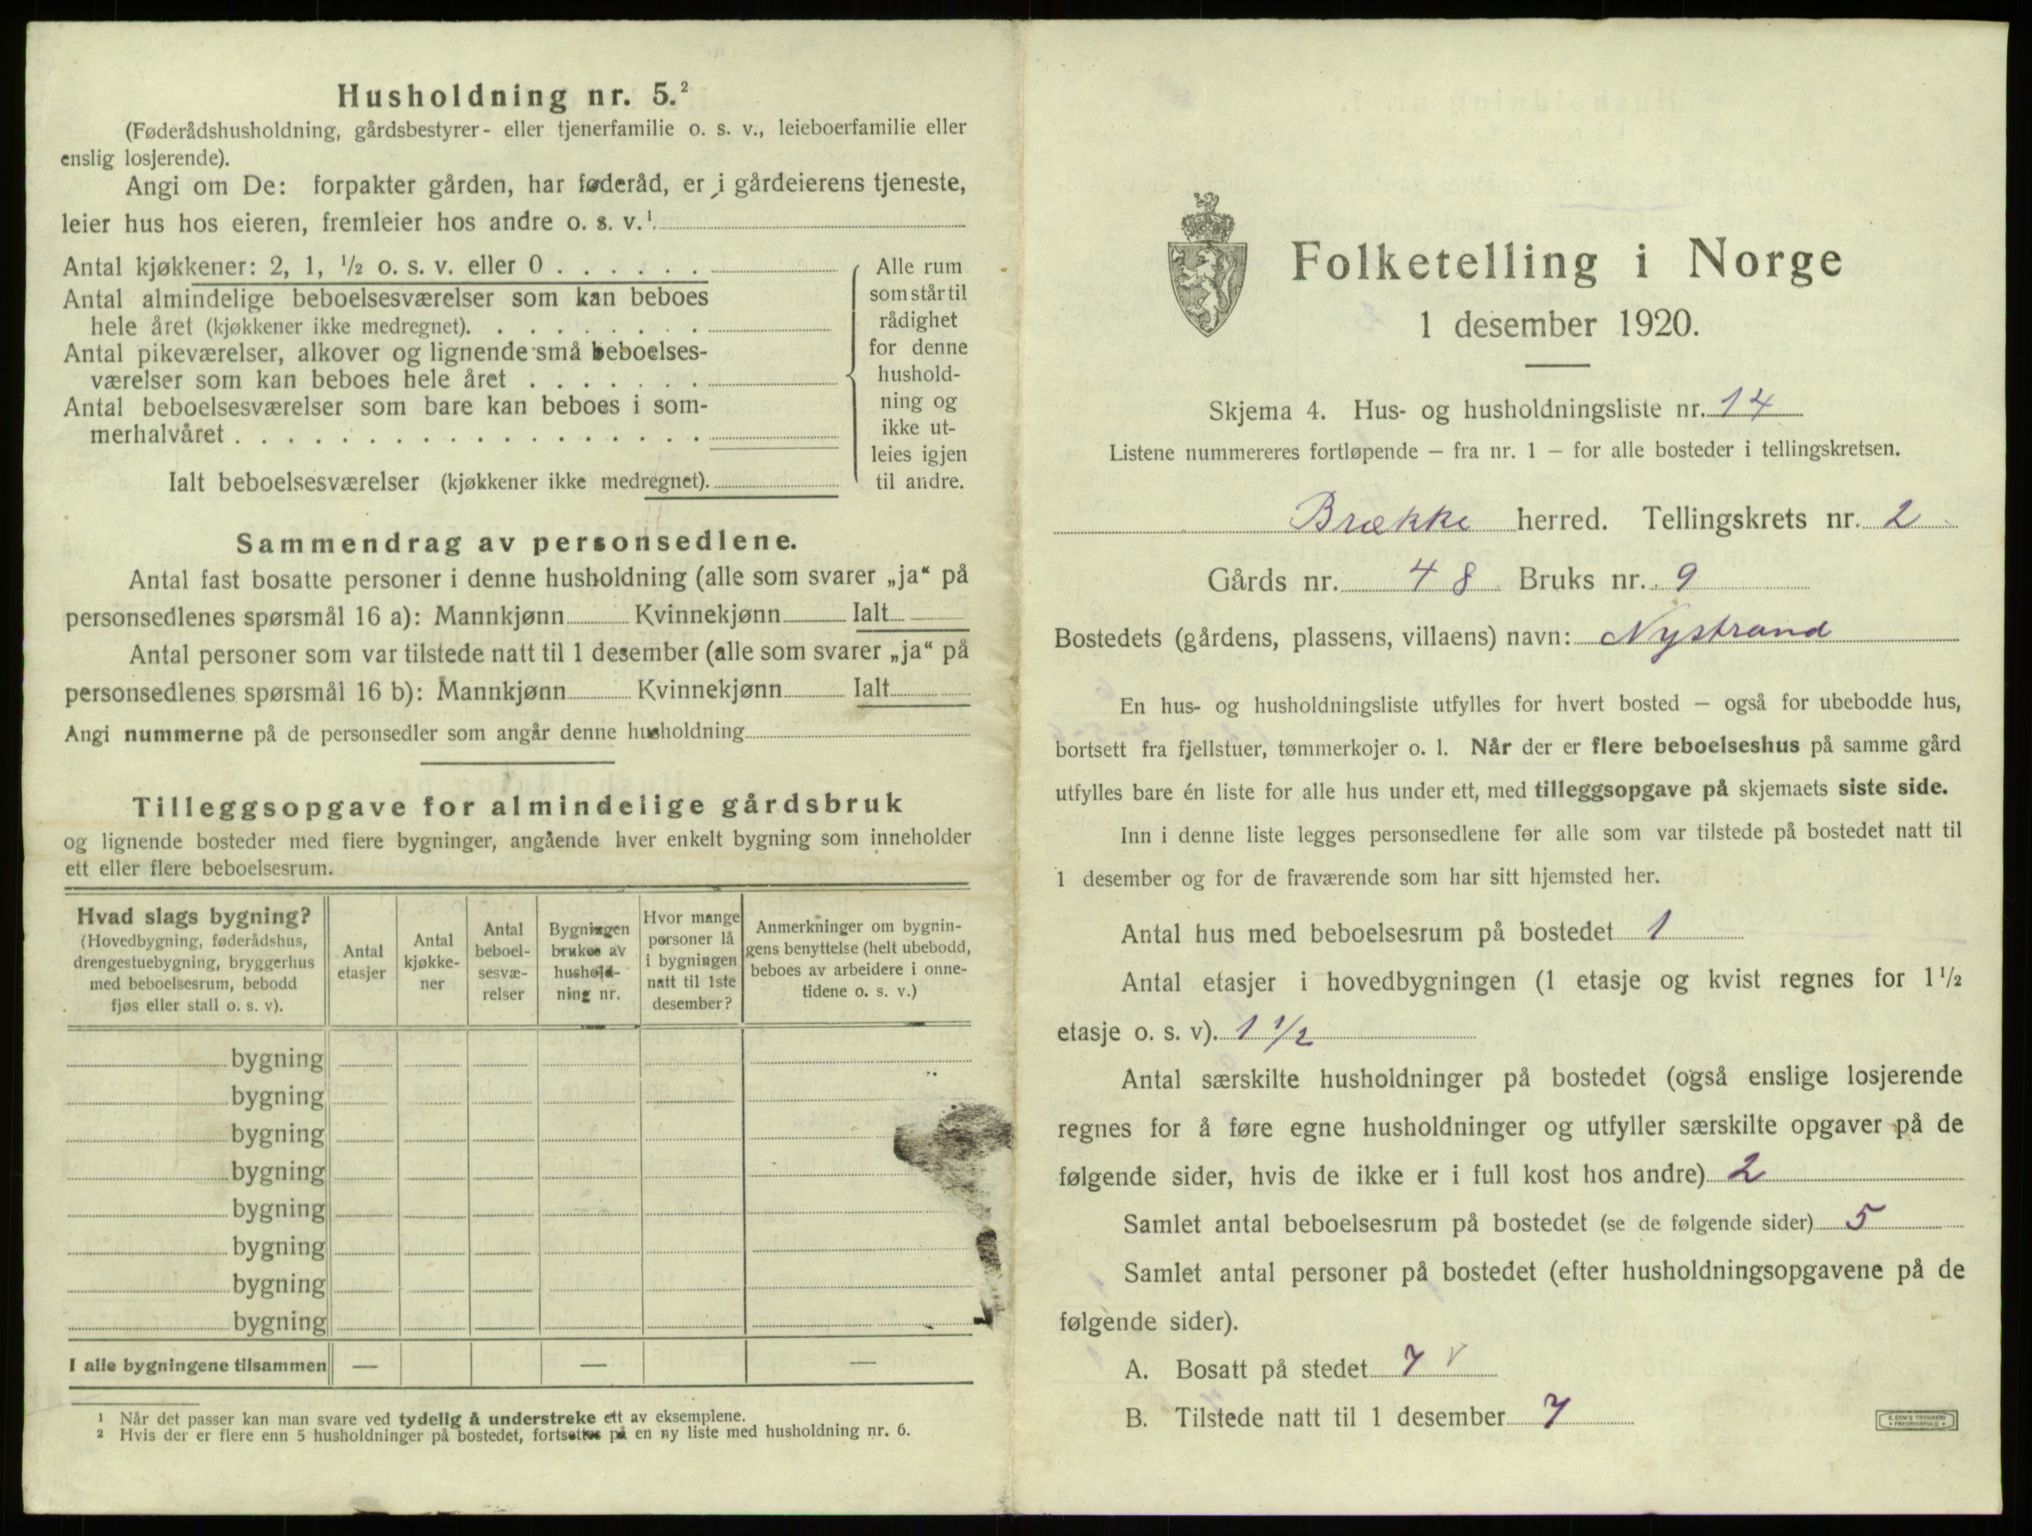 Husholdning nr. 5.²
(Føderådshusholdning, gårdsbestyrer- eller tjenerfamilie o. s. v., leieboerfamilie eller
enslig losjerende).
Angi om De: forpakter gården, har føderåd, er i gårdeierens tjeneste,
leier hus hos eieren, fremleier hos andre o. s. v.¹
Antal kjøkkener: 2, 1, ½ o. s. v. eller 0 . . . . . .
Antal almindelige beboelsesværelser som kan beboes
hele året (kjøkkener ikke medregnet). . . . . . . . .
Antal pikeværelser, alkover og lignende små beboelses-
værelser som kan beboes hele året . . . . . . .
Antal beboelsesværelser som bare kan beboes i som-
merhalvåret . . . . . . . . . . . . . . . . . .
Ialt beboelsesværelser (kjøkkener ikke medregnet).
Alle rum
som står til
rådighet
for denne
hushold-
ning og
ikke ut-
leies igjen
til andre.
Sammendrag av personsedlene.
Antal fast bosatte personer i denne husholdning (alle som svarer „ja“ på
personsedlenes spørsmål 16 a): Mannkjønn Kvinnekjønn Ialt
Antal personer som var tilstede natt til 1 desember (alle som svarer „ja“ på
personsedlenes spørsmål 16 b): Mannkjønn Kvinnekjønn Ialt
Angi nummerne på de personsedler som angår denne husholdning
Tilleggsopgave for almindelige gårdsbruk
og lignende bosteder med flere bygninger, angående hver enkelt bygning som inneholder
ett eller flere beboelsesrum.
Hvad slags bygning?
(Hovedbygning, føderådshus,
drengestuebygning, bryggerhus
med beboelsesrum, bebodd
fjøs eller stall o. s. v).
Antal
etasjer
Antal
kjøkke-
ner
Antal
beboel-
sesvæ-
relser
Bygningen
brukes av
hushold-
ning nr.
Hvor mange
personer lå
i bygningen
natt til 1ste
desember?
Anmerkninger om bygnin-
gens benyttelse (helt ubebodd,
beboes av arbeidere i onne-
tidene o. s. v.)
bygning
bygning
bygning
bygning
bygning
bygning
bygning
bygning
I alle bygningene tilsammen — — —
¹ Når det passer kan man svare ved tydelig å understreke ett av eksemplene.
² Hvis der er flere enn 5 husholdninger på bostedet, fortsettes på en ny liste med husholdning nr. 6.
Folketelling i Norge
1 desember 1920.
Skjema 4. Hus- og husholdningsliste nr. 14
Listene nummereres fortløpende – fra nr. 1 – for alle bosteder i tellingskretsen.
Brække herred. Tellingskrets nr. 2
Gårds nr. 48 Bruks nr. 9
Bostedets (gårdens, plassens, villaens) navn: Nystrand
En hus- og husholdningsliste utfylles for hvert bosted – også for ubebodde hus,
bortsett fra fjellstuer, tømmerkojer o. l. Når der er flere beboelseshus på samme gård
utfylles bare én liste for alle hus under ett, med tilleggsopgave på skjemaets siste side.
Inn i denne liste legges personsedlene for alle som var tilstede på bostedet natt til
1 desember og for de fraværende som har sitt hjemsted her.
Antal hus med beboelsesrum på bostedet 1
Antal etasjer i hovedbygningen (1 etasje og kvist regnes for 1½
etasje o. s. v). 1½
Antal særskilte husholdninger på bostedet (også enslige losjerende
regnes for å føre egne husholdninger og utfyller særskilte opgaver på de
følgende sider, hvis de ikke er i full kost hos andre) 2
Samlet antal beboelsesrum på bostedet (se de følgende sider) 5
Samlet antal personer på bostedet (efter husholdningsopgavene på de
følgende sider).
A. Bosatt på stedet 7 v
B. Tilstede natt til 1 desember 7